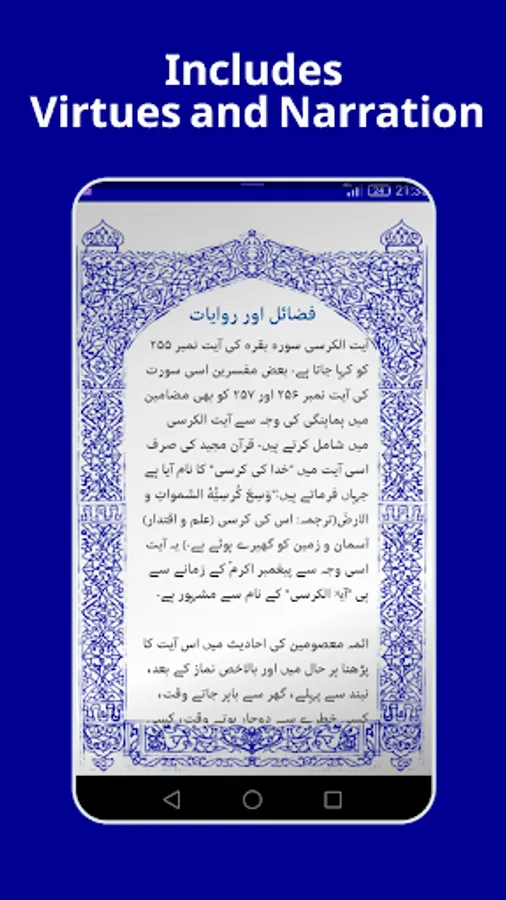 Includes
Virtues and Narration
24
فضائل اور روایات
آیت الکرسی سورہ بقرہ کی آیت نمبر ۲۵۵
کو کہا جاتا ہے۔ بعض مفسرین اسی سورت
کی آیت نمبر ۲۵۶ اور ۲۵۷ کو بھی مضامین
میں ہماہنگی کی وجہ سے آیت الکرسی
میں شامل کرتے ہیں۔ قرآن مجید کی صرف
اسی آیت میں "خدا کی کرسی" کا نام آیا ہے
جہاں فرماتے ہیں:"وَسِعَ كُرْسِيُّهُ السَّمواتِ و
الارضَ(ترجمہ: اس کی کرسی (علم و اقتدار)
آسمان و زمین کو گھیرے ہوئے ہے۔) یہ آیت
اسی وجہ سے پیغمبر اکرمؐ کے زمانے سے
ہی "آیۃ الکرسی" کے نام سے مشہور ہے۔
ائمہ معصومین کی احادیث میں اس آیت کا
پڑھنا ہر حال میں اور بالاخص نماز کے بعد،
نیند سے پہلے، گھر سے باہر جاتے وقت،
کسی خطرے سے دوچار ہوتے وقت، کسی